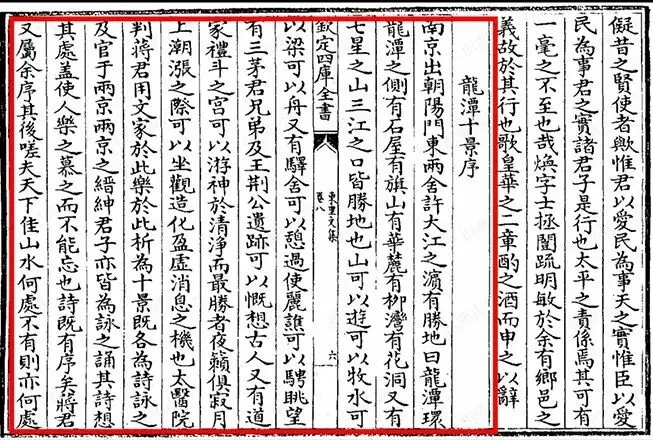 儗昔之賢使者歟惟君以愛民為事天之實惟臣以愛
民為事君之實諸君子是行也太平之責係焉其可有
一毫之不至也哉煥字士拯闓疏明敏於余有鄉邑之
義故於其行也歌皇華之二章酌之酒而申之以辭
龍潭十景序
南京出朝陽門東兩舍許大江之濵有勝地曰龍潭環
龍潭之側有石屋有旗山有華麓有柳灣有花洞又有
七星之山三江之口皆勝地也山可以遊可以牧水可
欽定四庫全書
東里文集
卷八
六
以梁可以舟又有驛舍可以憩過使麗譙可以騁眺望
有三茅君兄弟及王荆公遺跡可以慨想古人又有道
家禮斗之宮可以游神於清淨而最勝者夜籟俱寂月
上潮漲之際可以坐觀造化盈虚消息之機也太醫院
判蔣君用文家於此樂於此析為十景既各為詩詠之
及官于兩京兩京之縉紳君子亦皆為詠之誦其詩想
其處盖使人樂之慕之而不能忘也詩既有序矣蔣君
又屬余序其後嗟夫天下佳山水何處不有則亦何處